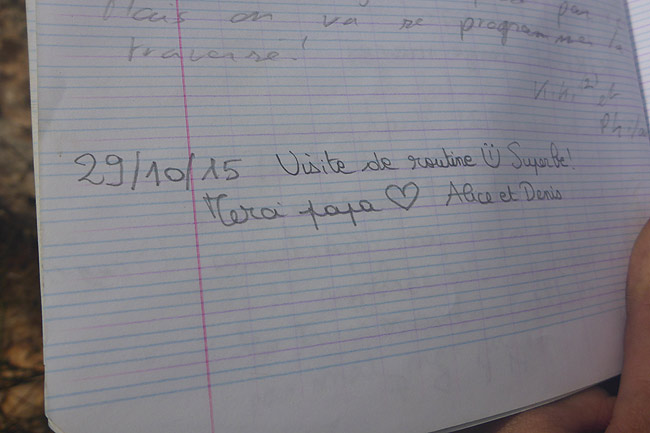 Mais on va se programmer la
traversée !
29/10/15 Visite de routine Superbe !
Merci papa ♡ Alice et Denis